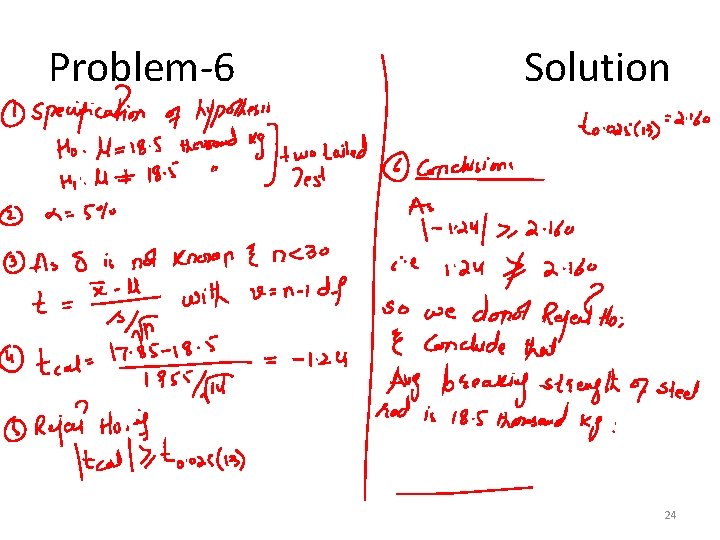 Problem-6
Solution
① Specification of hypothesis
H₀: μ = 18.5 thousand kg
H₁: μ ≠ 18.5 "
two tailed
Test
② α = 5%
③ As δ is not known & n<30
t = x̄ - μ / s/√n with v = n-1 df
④ t cal = 17.85-18.5 / 1.955/√14 = -1.24
⑤ Reject H₀ if
|t cal| ≥ t 0.025(13)
t 0.025(13) = 2.160
⑥ Conclusion:
As
|-1.24| ≥ 2.160
i.e 1.24 ≱ 2.160
so we donot Reject H₀;
& Conclude that
Avg breaking strength of steel
rod is 18.5 thousand kg.
24